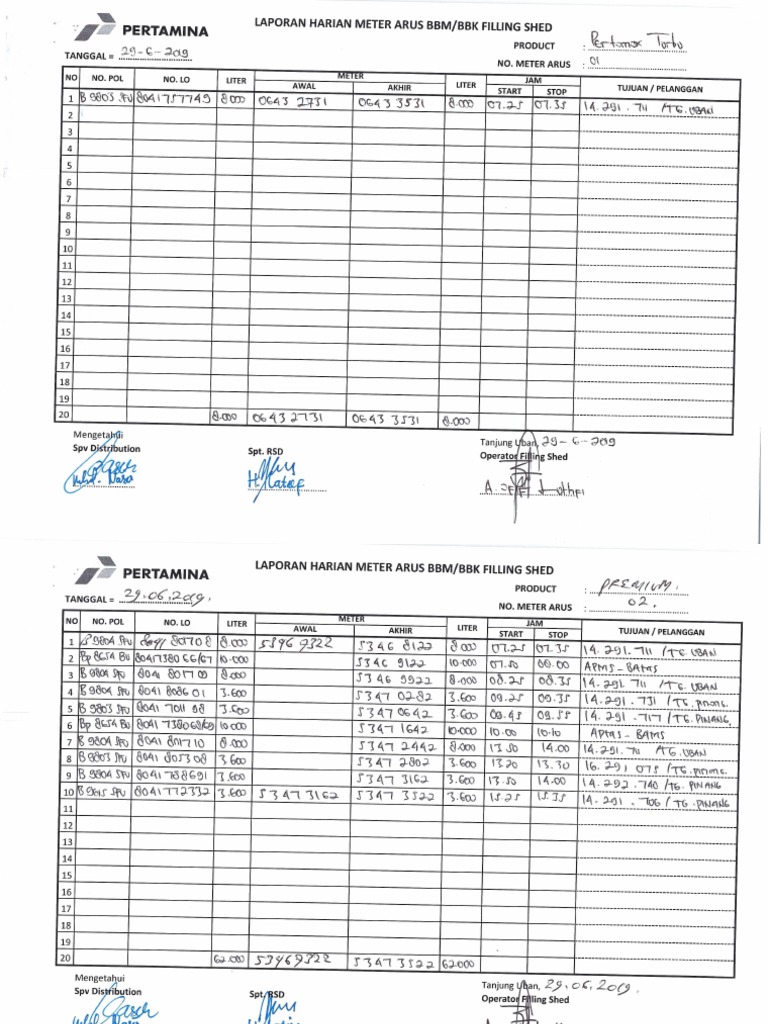 PERTAMINA
LAPORAN HARIAN METER ARUS BBM/BBK FILLING SHED
PRODUCT : Pertamax Turbo
TANGGAL = 29-6-2019
NO. METER ARUS : 01
NO NO. POL NO. LO LITER METER LITER JAM TUJUAN / PELANGGAN
AWAL AKHIR START STOP
1 B 9803 SFU 8041757749 8.000 0643 2731 0643 3531 8.000 07.25 07.35 14.291.711 /TG.UBAN
2
3
4
5
6
7
8
9
10
11
12
13
14
15
16
17
18
19
20 8.000 0643 2731 0643 3531 8.000
Mengetahui
Spv Distribution
Spt. RSD
Tanjung Uban, 29-6-2019
Operator Filling Shed
H. Lateef
PERTAMINA
LAPORAN HARIAN METER ARUS BBM/BBK FILLING SHED
PRODUCT : PREMIUM.
TANGGAL = 29.06.2019.
NO. METER ARUS : 02.
NO NO. POL NO. LO LITER METER LITER JAM TUJUAN / PELANGGAN
AWAL AKHIR START STOP
1 B 9804 SFU 8041 801708 8.000 53469322 5346 8122 8.000 07.25 07.35 14.291.711 /TG.UBAN
2 Bp 8654 BU 8041738066/67 10.000 5346 9122 10.000 07.50 08.00 APMS - BAMS
3 B 9804 SFU 8041 801709 8.000 5346 9922 8.000 08.25 08.35 14.291.711 /TG.UBAN
4 B 9804 SFU 8041 808601 3.600 5347 0282 3.600 09.25 09.35 14.291.731 /TG.PINANG
5 B 9803 SFU 8041 7011 98 3.600 5347 0642 3.600 09.45 09.55 14.291.717 /TG.PINANG
6 Bp 8654 BU 8041 738068/69 10.000 5347 1642 10.000 10.00 10.10 APMS - BAMS
7 B 9804 SFU 8041 801710 8.000 5347 2442 8.000 13.50 14.00 14.291.711 /TG.UBAN
8 B 9803 SFU 8041 805308 3.600 5347 2802 3.600 13.20 13.30 16.291 075 /TG.PINANG
9 B 9804 SFU 8041788691 3.600 5347 3162 3.600 13.50 14.00 14.292.740 /TG.PINANG
10 B 9615 SFU 8041772332 3.600 5347 3162 5347 3522 3.600 15.25 15.35 14.291.706 / TG PINANG
11
12
13
14
15
16
17
18
19
20 62.000 53469322 5347 3522 62.000
Mengetahui
Spv Distribution
Spt. RSD
Tanjung Uban, 29.06.2019.
Operator Filling Shed